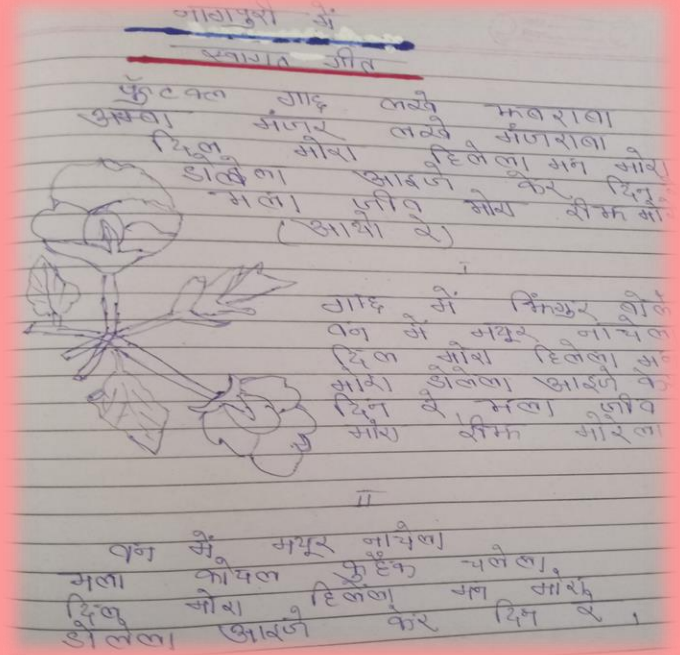 नागपुरी में
स्वागत गीत
फुटकल गाछ लखे झबराबा
अम्बा मंजर लखे मंजराबा
दिल मोरा हिलेला मन मोरा
डोलेला आइजे केर दिन
मला जीव मोरा रीझ
(आयो रे)
I
गाछ में झिंगुर
वन में मयुर नाचेला
दिल मोरा हिलेला मन
मोरा डोलेला आइजे के
दिन रे मला जीव
मोरा रीझ मोरेला
II
वन में मयूर नाचेला
मला कोयल कुहूक चलेला
दिल मोरा हिलेला मन मोरा
डोलेला आइजे केर दिन रे,